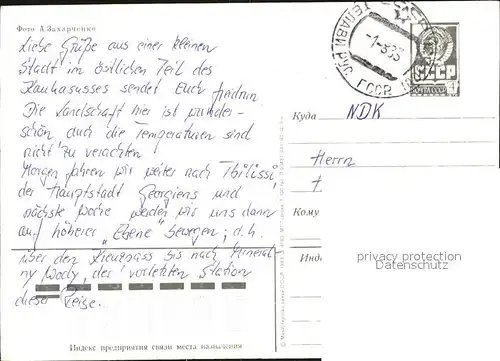 Фото А.Захарченко
Liebe Grüße aus einer kleinen
Stadt im östlichen Teil des
Kaukasusses sendet Euch Freidrun
Die Landschaft hier ist wunder-
schön auch die Temperaturen sind
nicht zu verachten.
Morgen fahren wir weiter nach Tbilissi,
der Hauptstadt Georgiens und
nächste Woche werden wir uns dann
auf höherer „Ebene" bewegen, d.h.
über den Kreuzpass bis nach Mineral-
ny Wody, der vorletzten Station
dieser Reise.
Индекс предприятия связи места назначения
ТЕЛАВИ
ГССР
СССР
Куда
NDK
Herrn
Кому
Инде
privacy protection
Datenschutz